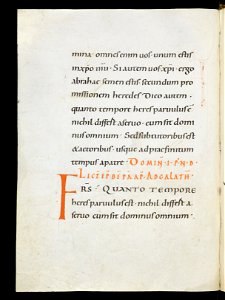 mina · omnes enim uos unum estis
inxpo ihu · Si autem uos xpi · ergo
abrahae semen estis secundum pro
missionem heredes · Dico autem ·
quanto tempore heres paruulus e
nichil differt aseruo · cum sit domi
nus omnium · Sed sub tutoribus est
& actoribus · usque ad praefinitum
tempus apatre · DOMIN · I · P N D
AD GALATH
FRS QUANTO TEMPORE
heres paruulus est · nichil differt a
seruo cum sit dominus omnium ·